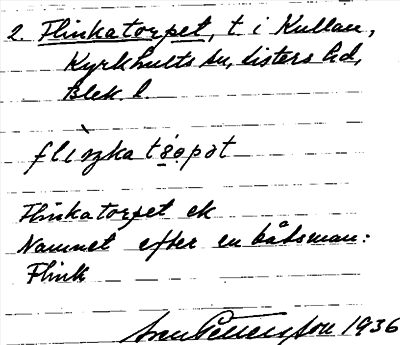 2. Flinkatorpet, t i Kullan,
Kyrkhults sn, Listers hd,
Blek. l.
flìŋka tɷrpət
Flinkatorpet ek
Namnet efter en båtsman:
Flink
Sven Pettersson 1936